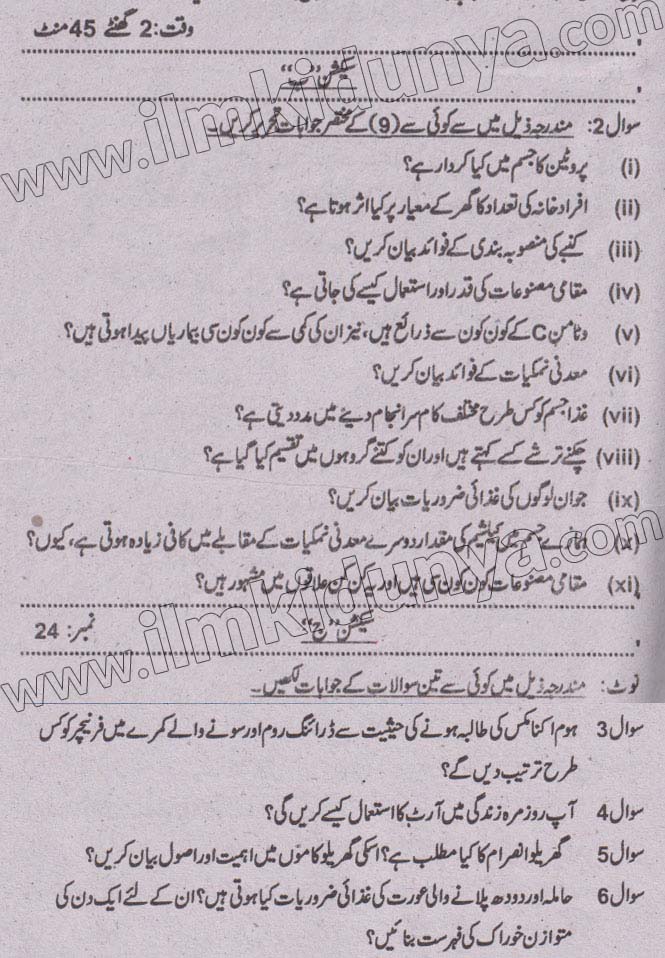 وقت: 2 گھنٹے 45 منٹ
سیکشن ”ب“
سوال 2: مندرجہ ذیل میں سے کوئی سے (9) کے مختصر جوابات تحریر کریں۔
(i) پروٹین کا جسم میں کیا کردار ہے؟
(ii) افراد خانہ کی تعداد کا گھر کے معیار پر کیا اثر ہوتا ہے؟
(iii) کنبے کی منصوبہ بندی کے فوائد بیان کریں؟
(iv) مقامی مصنوعات کی قدر اور استعمال کیسے کی جاتی ہے؟
(v) وٹامن C کے کون کون سے ذرائع ہیں، نیز ان کی کمی سے کون کون سی بیماریاں پیدا ہوتی ہیں؟
(vi) معدنی نمکیات کے فوائد بیان کریں؟
(vii) غذا جسم کو کس طرح مختلف کام سرانجام دینے میں مدد دیتی ہے؟
(viii) چکنے ترشے کسے کہتے ہیں اور ان کو کتنے گروہوں میں تقسیم کیا گیا ہے؟
(ix) جوان لوگوں کی غذائی ضروریات بیان کریں؟
(x) ہمارے جسم میں کیلشیم کی مقدار دوسرے معدنی نمکیات کے مقابلے میں کافی زیادہ ہوتی ہے، کیوں؟
(xi) مقامی مصنوعات کون کون سی ہیں اور یہ کن کن علاقوں میں مشہور ہیں؟
سیکشن ”ج“ نمبر: 24
نوٹ: مندرجہ ذیل میں کوئی سے تین سوالات کے جوابات لکھیں۔
سوال 3 ہوم اکنامکس کی طالبہ ہونے کی حیثیت سے ڈرائنگ روم اور سونے والے کمرے میں فرنیچر کو کس
طرح ترتیب دیں گے؟
سوال 4 آپ روزمرہ زندگی میں آرٹ کا استعمال کیسے کریں گی؟
سوال 5 گھریلو انصرام کا کیا مطلب ہے؟ اسکی گھریلو کاموں میں اہمیت اور اصول بیان کریں؟
سوال 6 حاملہ اور دودھ پلانے والی عورت کی غذائی ضروریات کیا ہوتی ہیں؟ ان کے لئے ایک دن کی
متوازن خوراک کی فہرست بنائیں؟
www.ilmkidunya.com
www.ilmkidunya.com